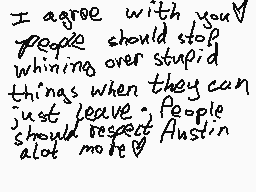 I agree with you♥
people should stop
whining over stupid
things when they can
just leave; People
should respect Austin
alot more♥